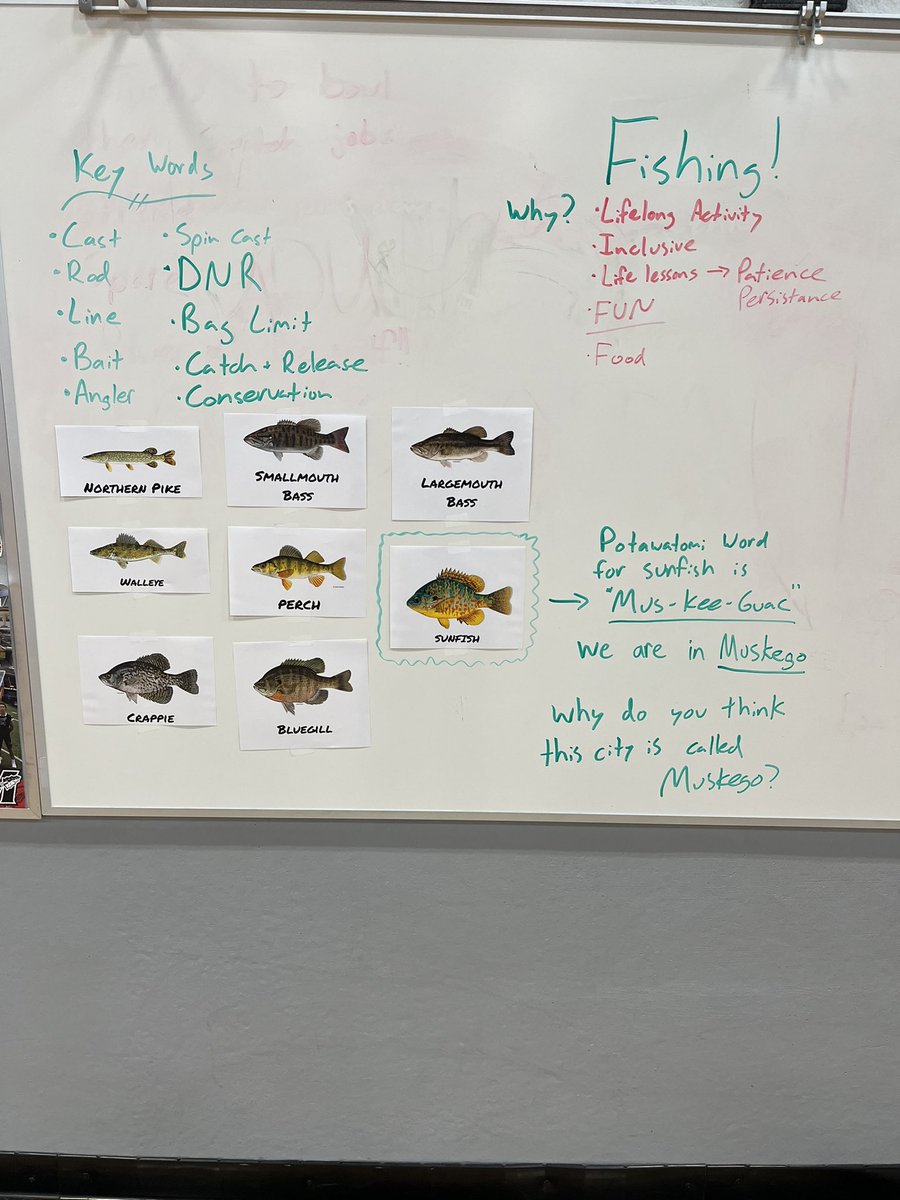 Key Words
• Cast
• Rod
• Line
• Bait
• Angler
• Spin cast
• DNR
• Bag Limit
• Catch + Release
• Conservation
Fishing!
Why?
• Lifelong Activity
• Inclusive
• Life lessons → Patience
Persistance
• FUN
• Food
NORTHERN PIKE
SMALLMOUTH
BASS
LARGEMOUTH
BASS
WALLEYE
PERCH
SUNFISH
CRAPPIE
BLUEGILL
→ Potawatomi word
for sunfish is
"Mus-kee-Guac"
We are in Muskego
Why do you think
this city is called
Muskego?